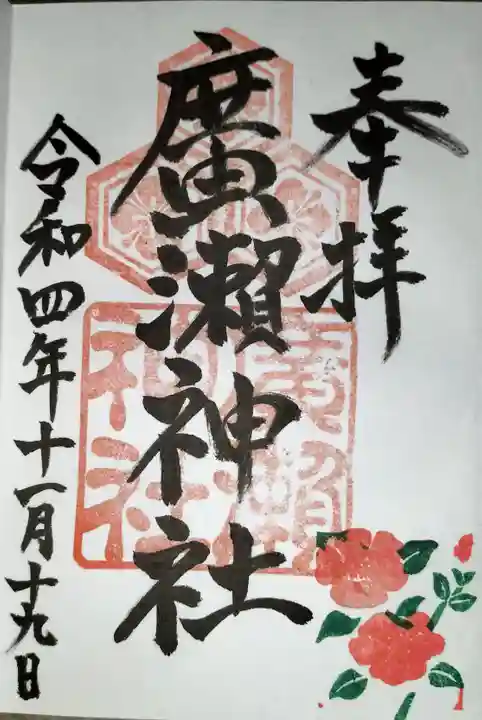 奉拝
廣瀬神社
廣瀬神社
令和四年十一月十九日